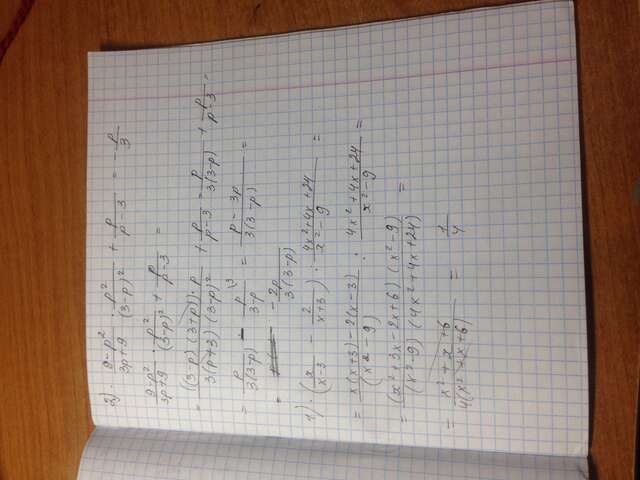 2). (9-p²)/(3p+9) · p²/(3-p)² + p/(p-3) = -p/3
(9-p²)/(3p+9) · p²/(3-p)² + p/(p-3) =
= ((3-p)(3+p))·p/(3(p+3)(3-p)²) + p/(p-3) = p/(3(3-p)) + p/(p-3) =
= p/(3(3-p)) - p\3/(3-p) = (p-3p)/(3(3-p)) =
= -2p/(3(3-p))
1). (x/(x-3) - 2/(x+3)) : (4x²+4x+24)/(x²-9) =
= (x(x+3)-2(x-3))/(x²-9) : (4x²+4x+24)/(x²-9) =
= (x²+3x-2x+6)(x²-9)/((x²-9)(4x²+4x+24)) =
= (x²+x+6)/(4(x²+x+6)) = 1/4